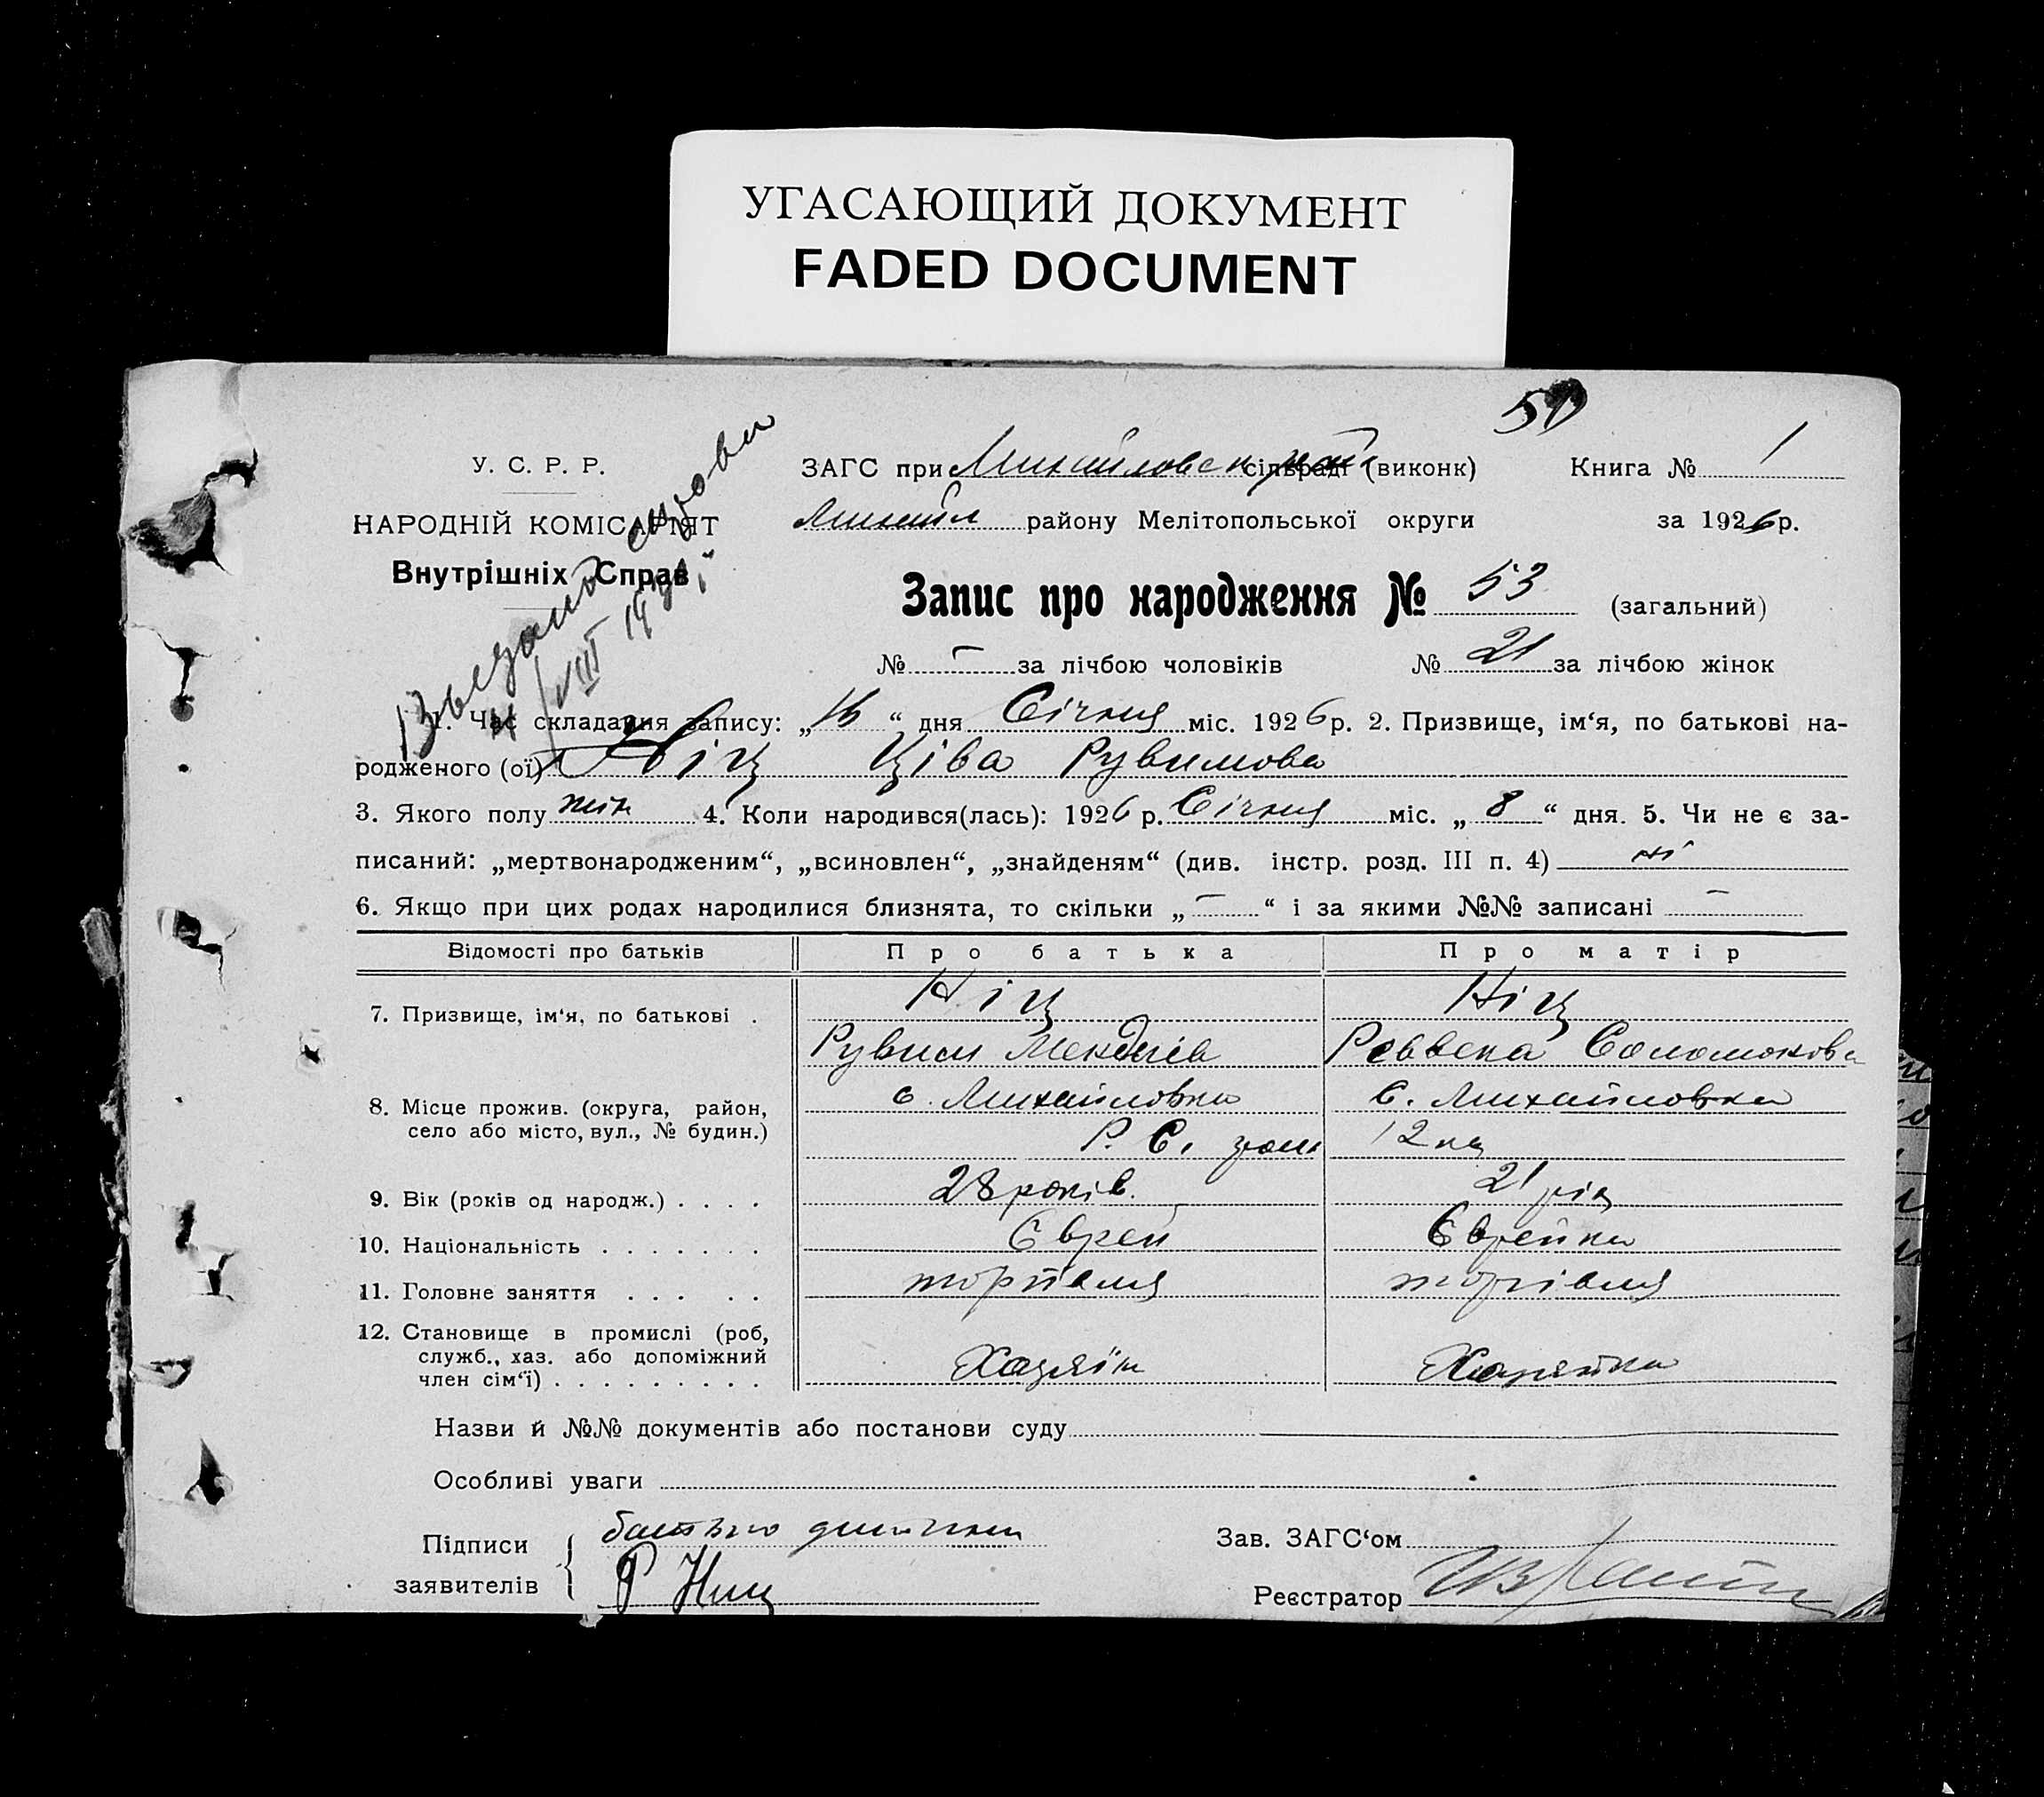 УГАСАЮЩИЙ ДОКУМЕНТ
FADED DOCUMENT
50
У. С. Р. Р.
НАРОДНІЙ КОМІСАРІЯТ
Внутрішніх Справ
ЗАГС при Михайловск сільраді (виконк)
Книга № 1
Михайл району Мелітопольської округи
за 1926 р.
Запис про народження № 53 (загальний)
№ — за лічбою чоловіків № 21 за лічбою жінок
VIII 19
1. Час складання запису: „16“ дня Січня міс. 1926 р. 2. Призвище, ім‘я, по батькові на-
родженого (ої) Ніц Ціва Рувимова
3. Якого полу жін 4. Коли народився(лась): 1926 р. Січня міс. „8“ дня. 5. Чи не є за-
писаний: „мертвонародженим“, „всиновлен“, „знайденям“ (див. інстр. розд. III п. 4) ні
6. Якщо при цих родах народилися близнята, то скільки „—“ і за якими №№ записані —
Відомості про батьків Про батька Про матір
7. Призвище, ім‘я, по батькові . Ніц Ніц
Рувим Реввека Соломонова
8. Місце прожив. (округа, район, с. Михайловка с. Михайловка
село або місто, вул., № будин.) Р. С.
9. Вік (років од народж.) . . . . 28 років. 21 рік
10. Національність . . . . . . . Єврей Єврейка
11. Головне заняття . . . . . торгівля торгівля
12. Становище в промислі (роб,
служб., хаз. або допоміжний
член сім‘ї) . . . . . . . . . Хазяїн Хазяйка
Назви й №№ документів або постанови суду
Особливі уваги
Підписи
заявителів
батько дитини
Р Ниц
Зав. ЗАГС‘ом
Реєстратор